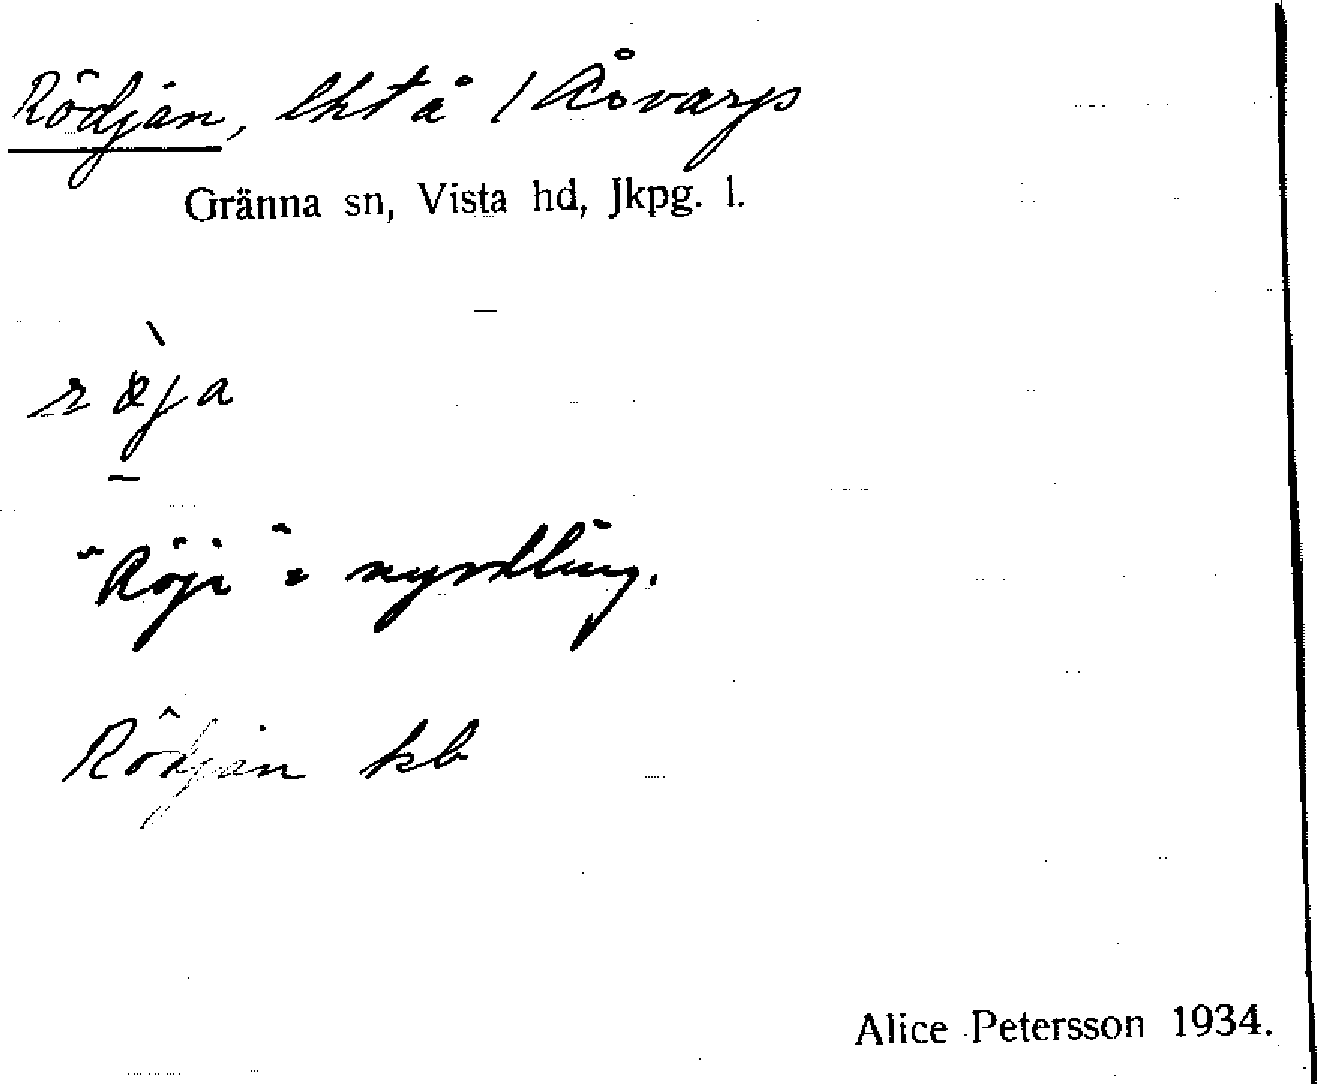 Rödjan, lht å 1 Åsvarp
Gränna sn, Vista hd, Jkpg. l.
ròja
"Röja" = nyodling.
Rödjan kb
Alice Petersson 1934.